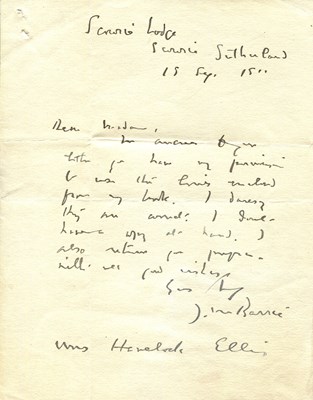 Scourie Lodge
Scourie Sutherland
15 Sep. 19
Dear Madam,
In answer to your
letter you have my permission
to use the lines marked
from my book. I daresay
they are correct. I don't
have a copy at hand. I
also return you
with all good wishes
Yours truly
J. M. Barrie
Mrs Havelock Ellis